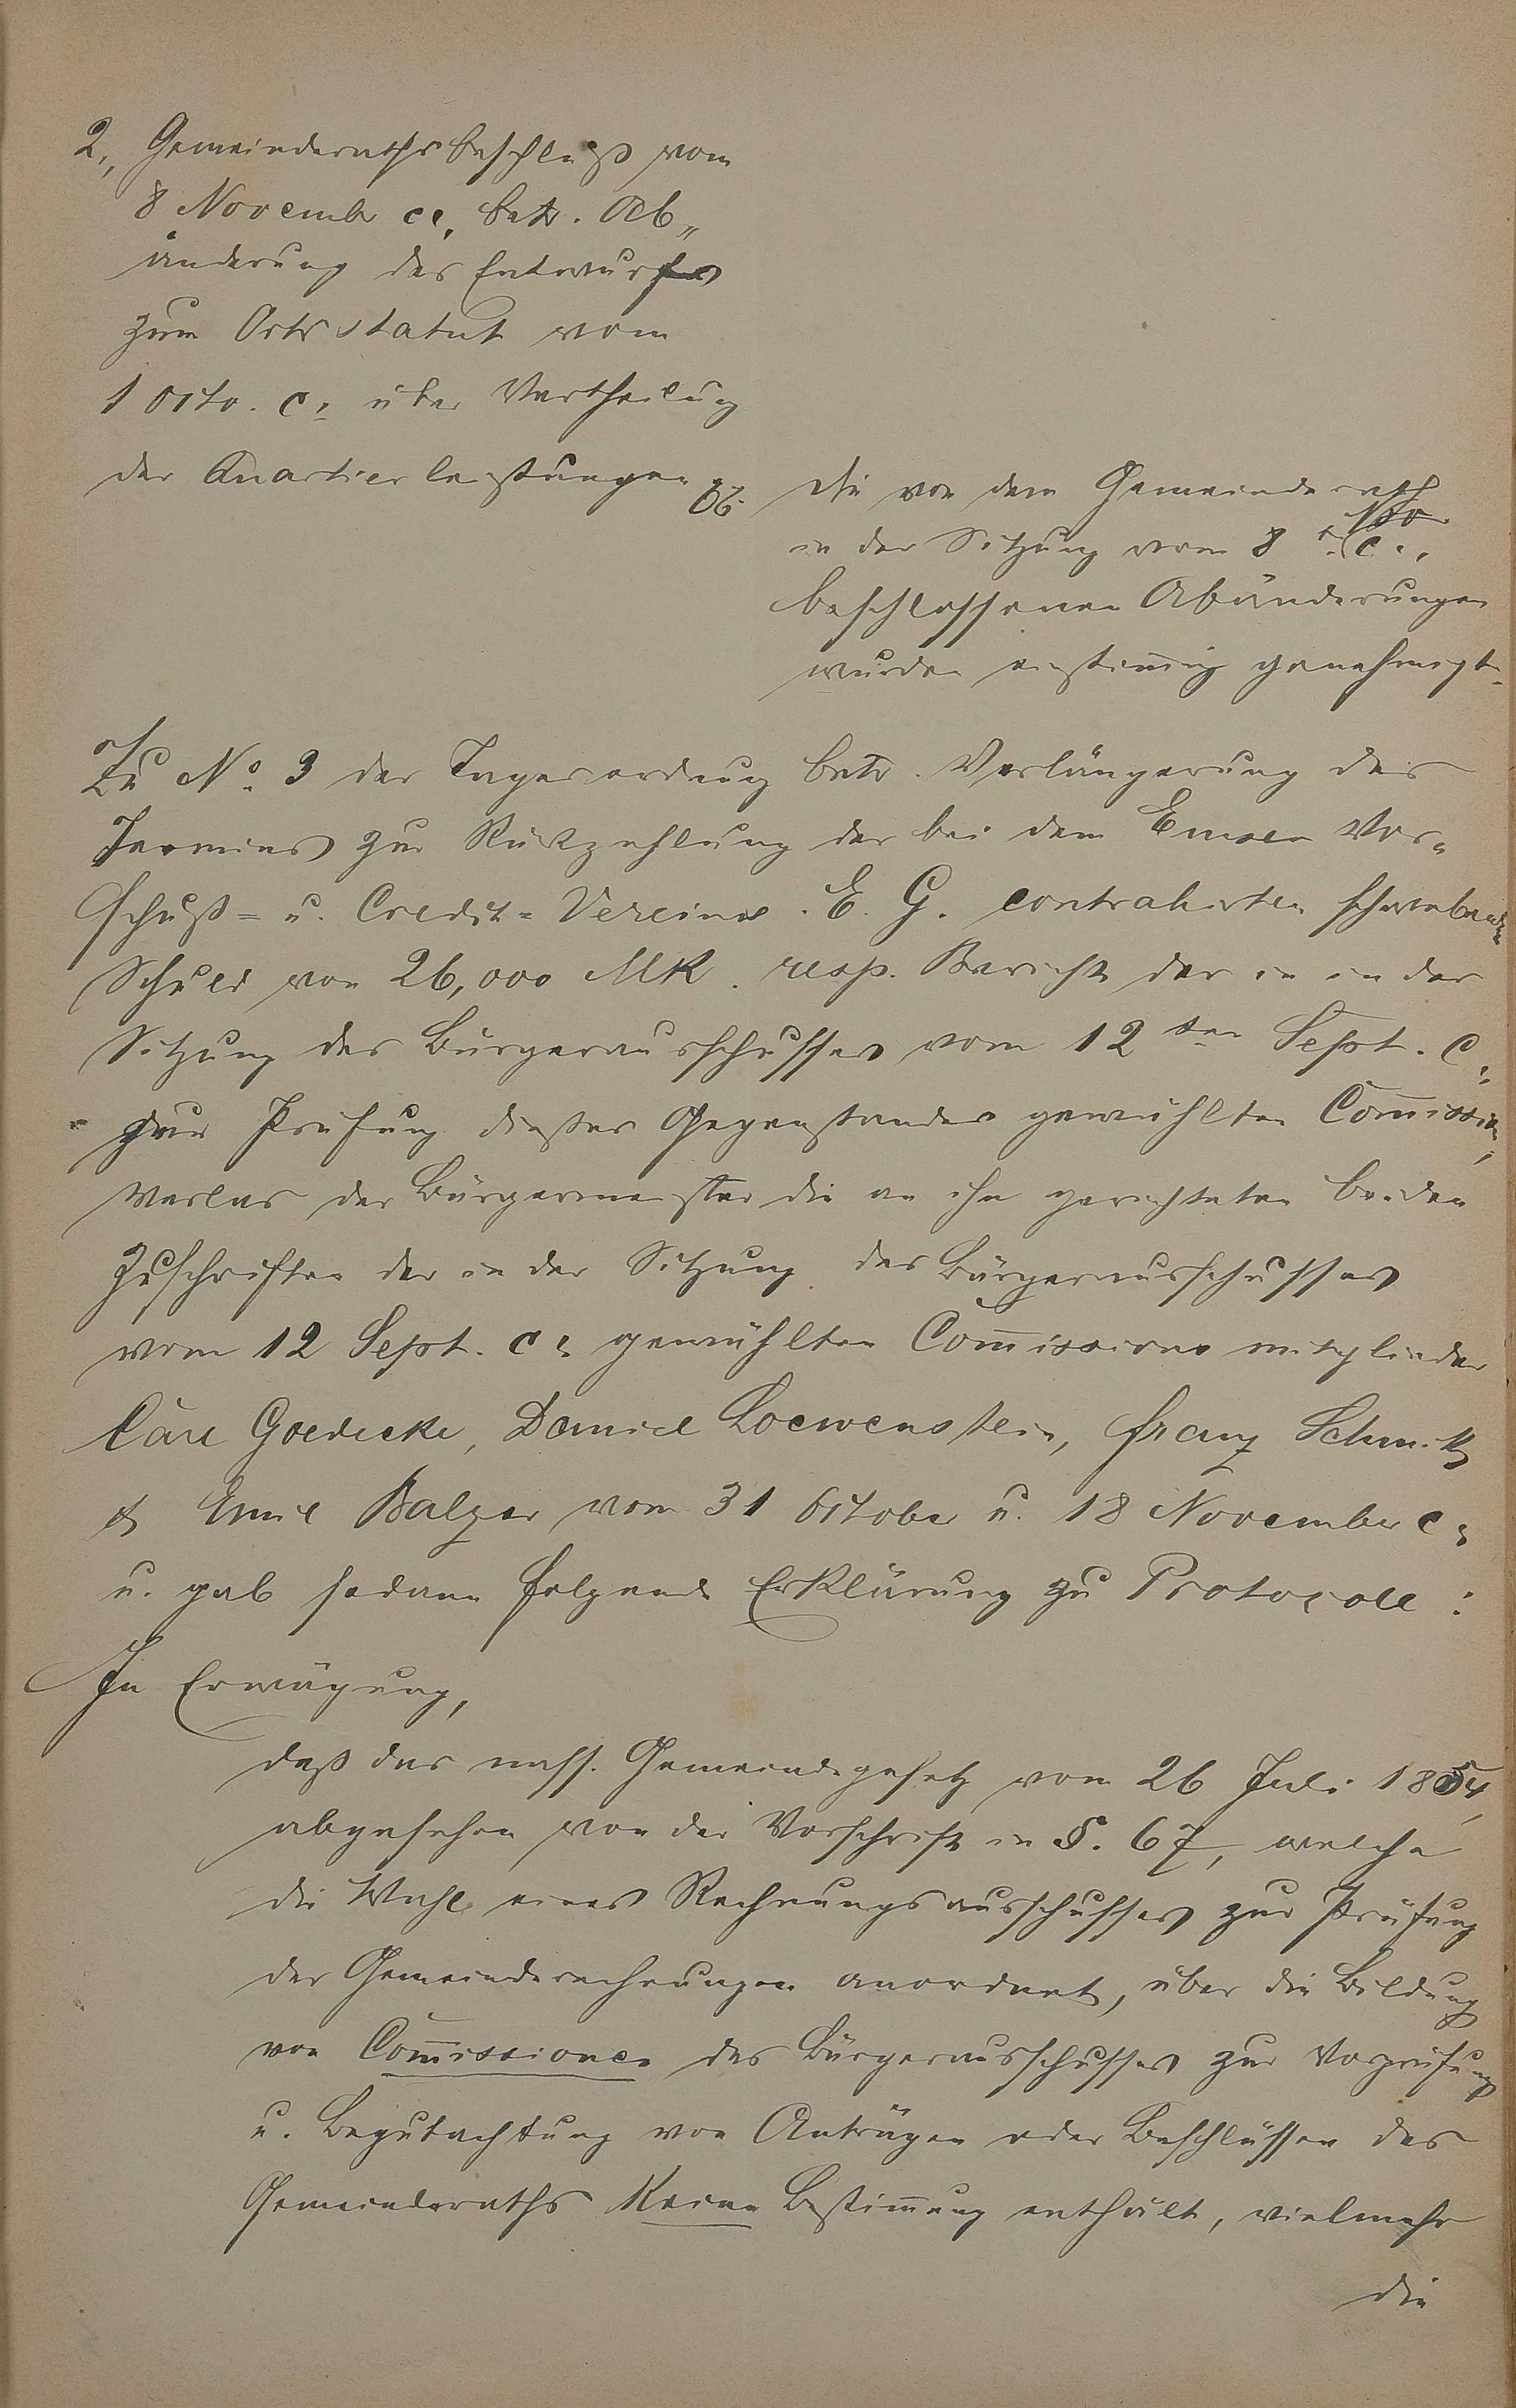 2., Gemeinderathsbeschluß vom
8 November cr. betr. Ab„
änderung des Entwurfes
zum Ortsstatut vom
1 Octo. c. über Vertheilung
der Quartierleistungen
Die von dem Gemeinderath
in der Sitzung vom 8 t. Nov. c.,
beschlossenen Abänderungen
wurden einstimig genehmigt.
Zu No. 3 der Tagesordnung betr. Verlängerung des
Termines zur Rükzahlung der bei dem Emser Vor-
schuß- u. Credit-Vereine. E. G. contrahirten schwebenden
Schuld von 26,000 Mk. resp. Bericht der in in der
Sitzung des Bürgerausschusses vom 12ten Sept. c.
zur Prüfung dieses Gegenstandes gewählten Com̄ission,
verlas der Bürgermeister die an ihn gerichteten beiden
Zuschriften der in der Sitzung des Bürgerausschusses
vom 12 Sept. c. gewählten Com̄issions mitglieder
Carl Goedecke, Daniel Loewenstein, Franz Schmitz
& Emil Balzer vom 31 October u. 18 November c.
u. gab sodann folgende Erklärung zu Protocoll:
In Erwägung,
daß das nass. Gemeindegesetz vom 26 Juli 1854,
abgesehen von der Vorschrift in §. 67, welche
die Wahl eines Rechnungsausschusses zur Prüfung
der Gemeinderechnungen anordnet, über die Bildung
von Com̄issionen des Bürgerausschusses zur Vorprüfung
u. Begutachtung von Anträgen oder Beschlüssen des
Gemeinderaths keine Bestim̄ung enthält, vielmehr
die